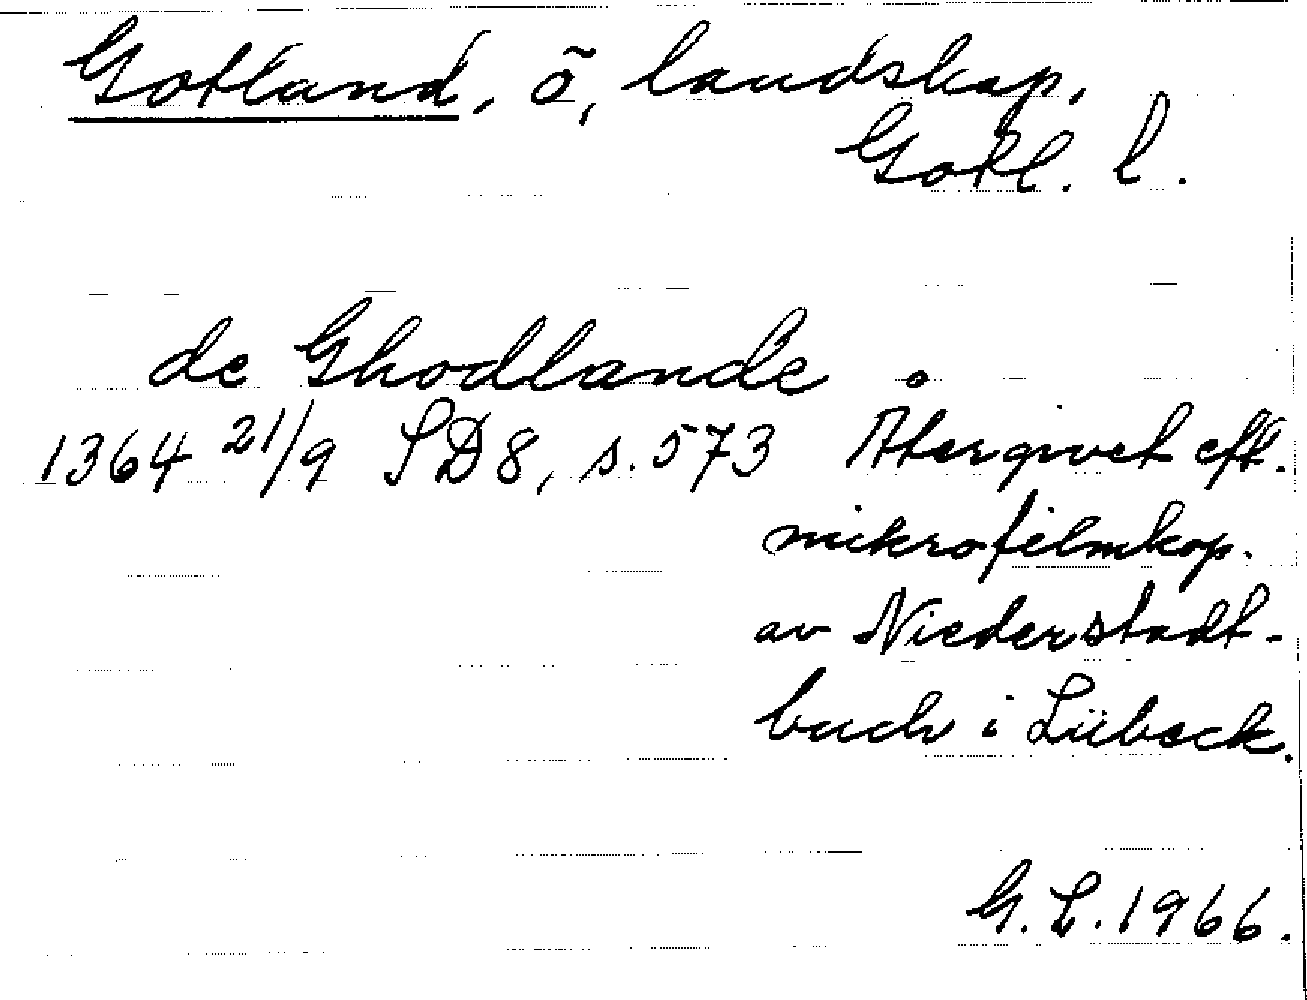 Gotland, ö, landskap,
Gotl. l.
de Ghodlande
1364 21/9 SD8, s. 573 Återgivet eft.
mikrofilmkop.
av Niederstadt-
buch i Lübeck.
G. L. 1966.